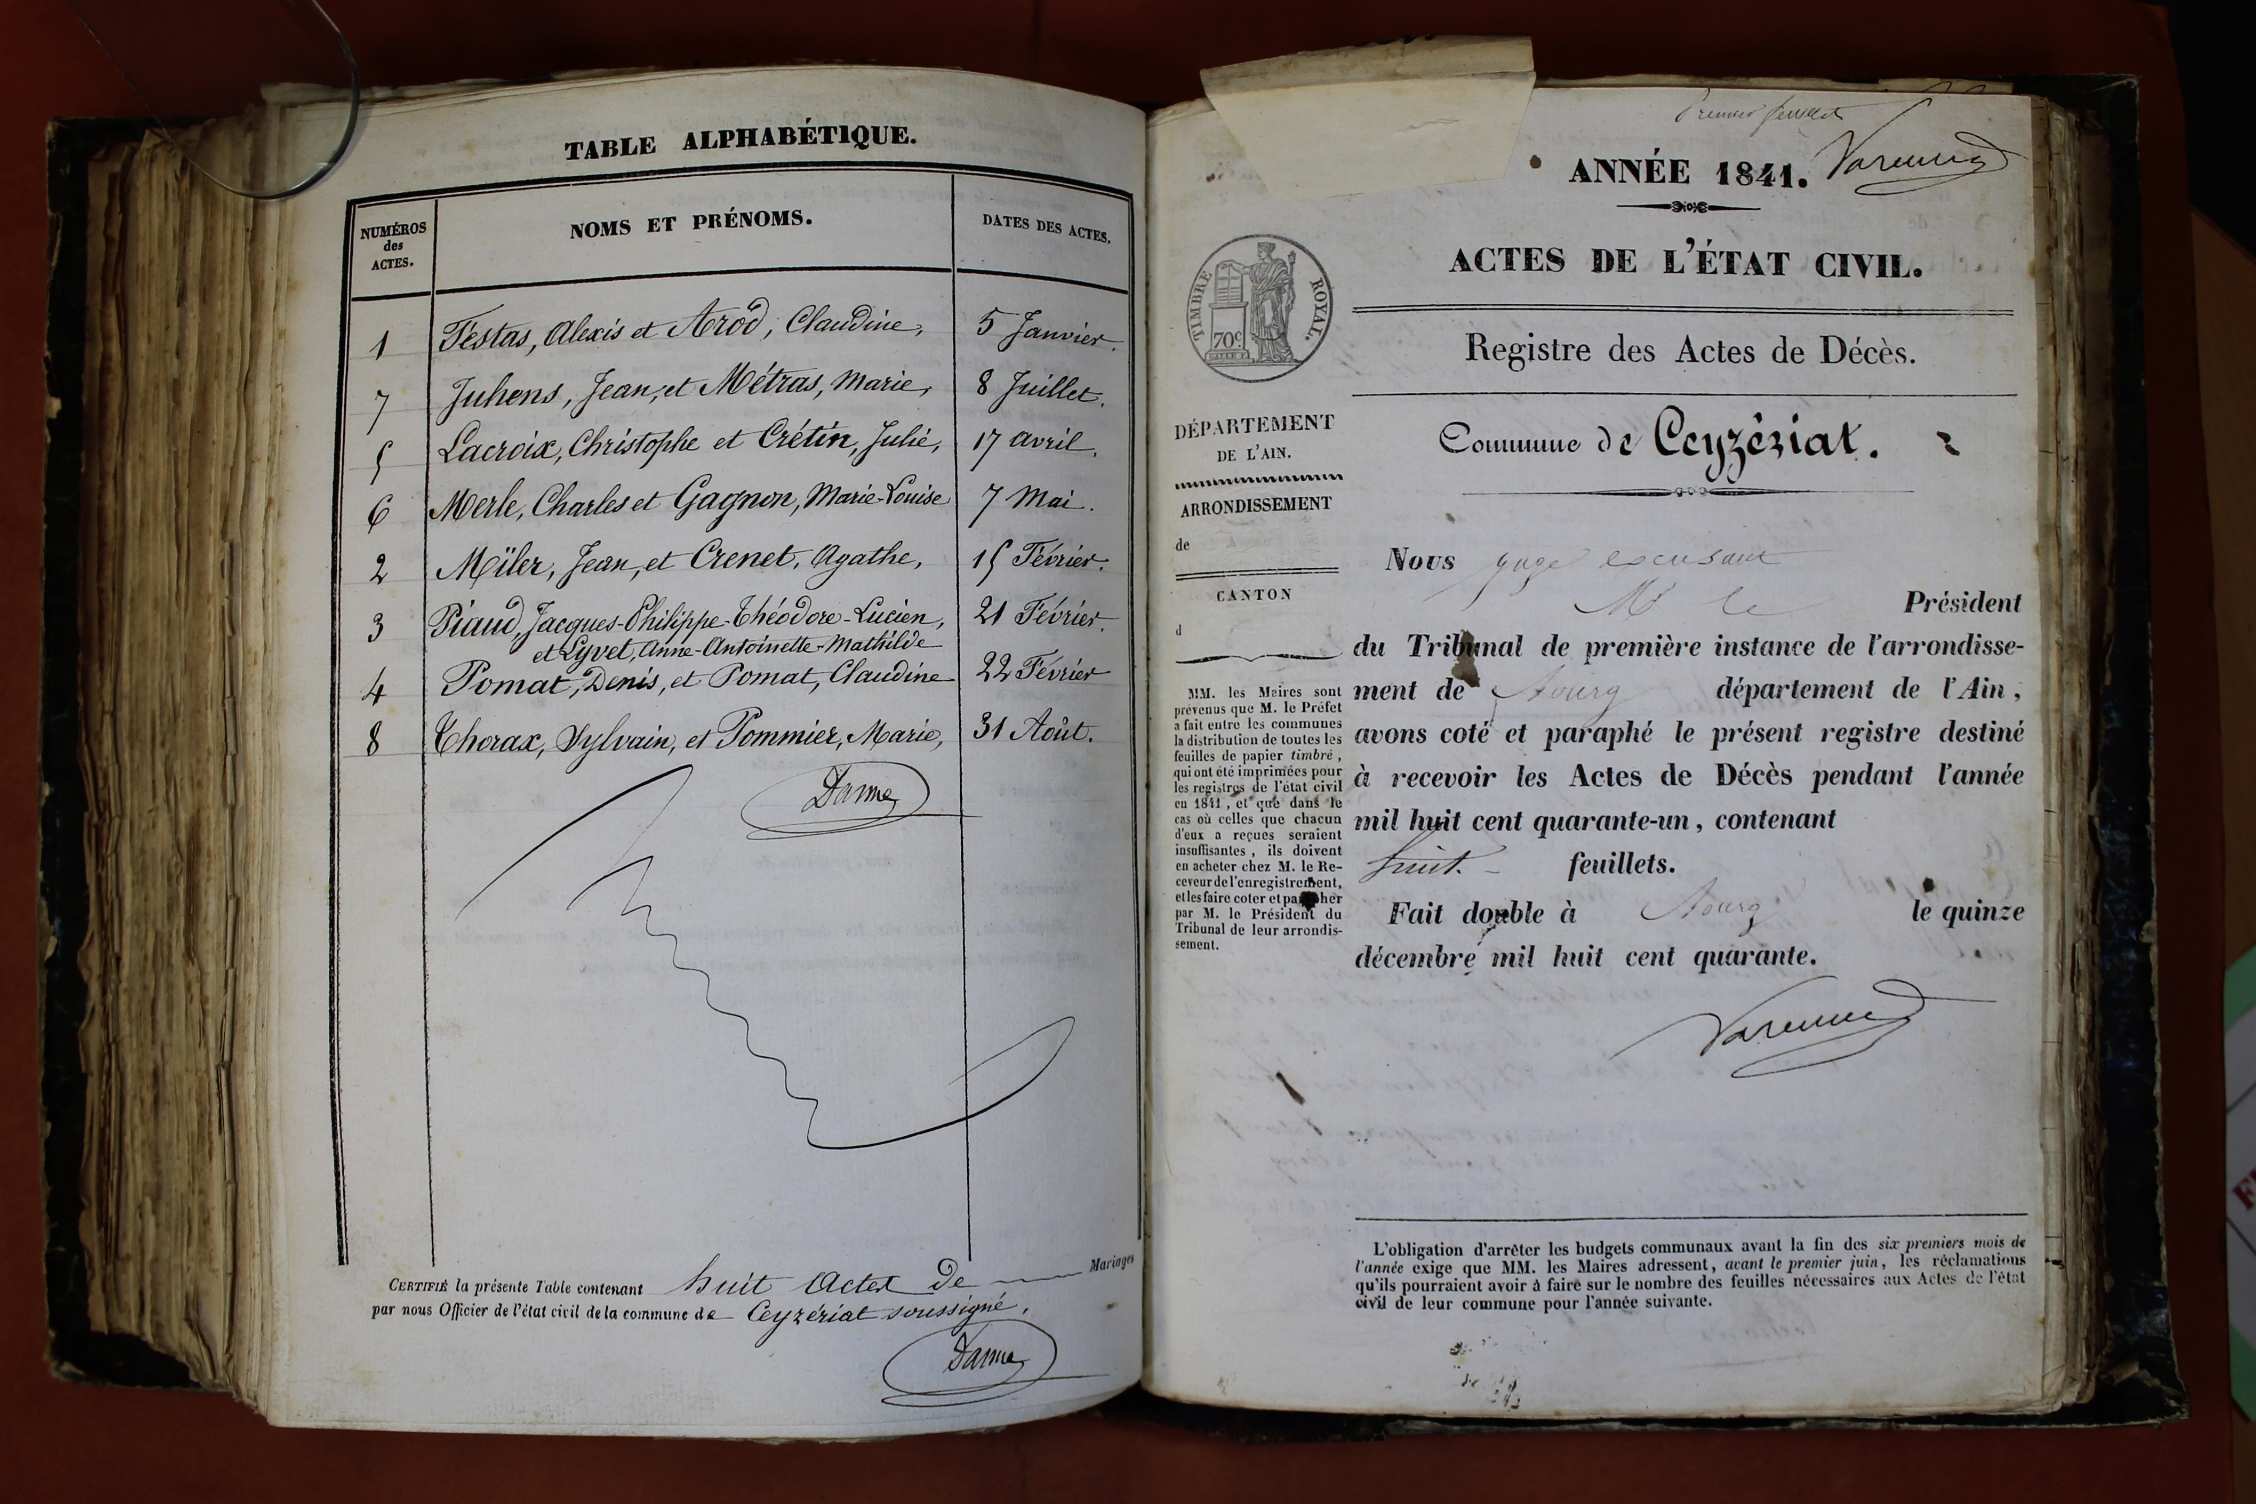 TABLE ALPHABÉTIQUE.
NUMÉROS des ACTES.
NOMS ET PRÉNOMS.
DATES DES ACTES.
1 Festas, Alexis et Arod, Claudine, 5 Janvier.
7 Juhens, Jean, et Métras, Marie, 8 Juillet.
5 Lacroix, Christophe et Crétin, Julie, 17 avril.
6 Merle, Charles et Gagnon, Marie-Louise 7 Mai.
2 Mïler, Jean, et Crenet, Agathe, 15 Février.
3 Piaud, Jacques-Philippe-Théodore-Lucien, 21 Février.
et Lyvet, Anne-Antoinette-Mathilde
4 Pomat, Denis, et Pomat, Claudine 22 Février
8 Thorax, Sylvain, et Pommier, Marie, 31 Août.
CERTIFIÉ la présente Table contenant huit Actes de Mariages
par nous Officier de l'état civil de la commune de Ceyzériat soussigné.
Premier feuillet
ANNÉE 1841.
ACTES DE L'ÉTAT CIVIL.
TIMBRE ROYAL.
70c
Registre des Actes de Décès.
Commune de Ceyzériat.
DÉPARTEMENT
DE L'AIN.
ARRONDISSEMENT
de
CANTON
d
MM. les Maires sont
prévenus que M. le Préfet
a fait entre les communes
la distribution de toutes les
feuilles de papier timbré,
qui ont été imprimées pour
les registres de l'état civil
en 1841, et que dans le
cas où celles que chacun
d'eux a reçues seraient
insuffisantes, ils doivent
en acheter chez M. le Re-
ceveur de l'enregistrement,
et les faire coter et parapher
par M. le Président du
Tribunal de leur arrondis-
sement.
Nous juge excusant
Mr le Président
du Tribunal de première instance de l'arrondisse-
ment de Bourg département de l'Ain,
avons coté et paraphé le présent registre destiné
à recevoir les Actes de Décès pendant l'année
mil huit cent quarante-un, contenant
huit feuillets.
Fait double à Bourg le quinze
décembre mil huit cent quarante.
L'obligation d'arrêter les budgets communaux avant la fin des six premiers mois de
l'année exige que MM. les Maires adressent, avant le premier juin, les réclamations
qu'ils pourraient avoir à faire sur le nombre des feuilles nécessaires aux Actes de l'état
civil de leur commune pour l'année suivante.